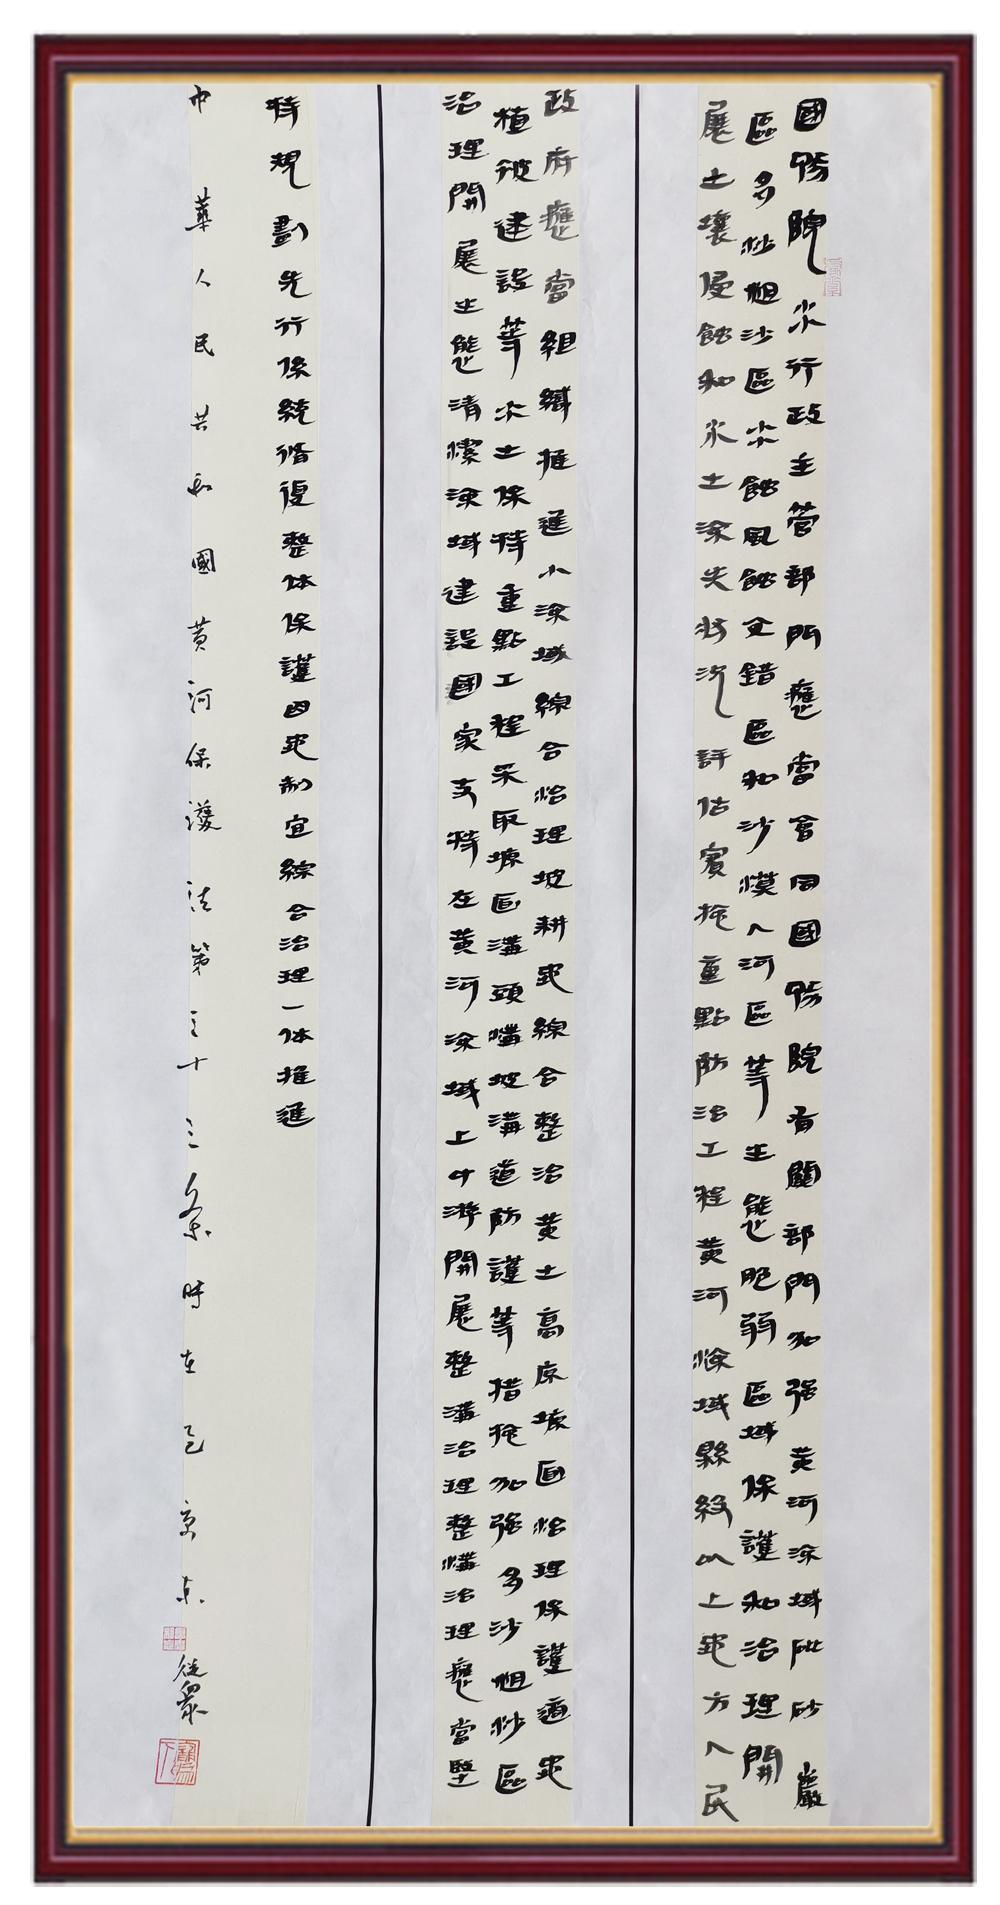 國務院水行政主管部門應當會同國務院有關部門加强黄河流域砒砂嚴
區多沙粗沙區水蝕風蝕交錯區和沙漠入河區等生態脆弱區域保護和治理開
展土壤侵蝕和水土流失狀況評估實施重點防治工程黄河流域縣級以上地方人民
政府應當組織推進小流域綜合治理坡耕地綜合整治黄土高原塬面治理保護適地
植被建設等水土保持重點工程采取塬面溝頭溝坡溝道防護等措施加强多沙粗沙區
治理開展生態清潔流域建設國家支持在黄河流域上中游開展整溝治理整溝治理應當堅
持規劃先行係統修復整体保護因地制宜綜合治理一体推進
中華人民共和國黄河保護法第三十三条時在乙巳京东
從衆